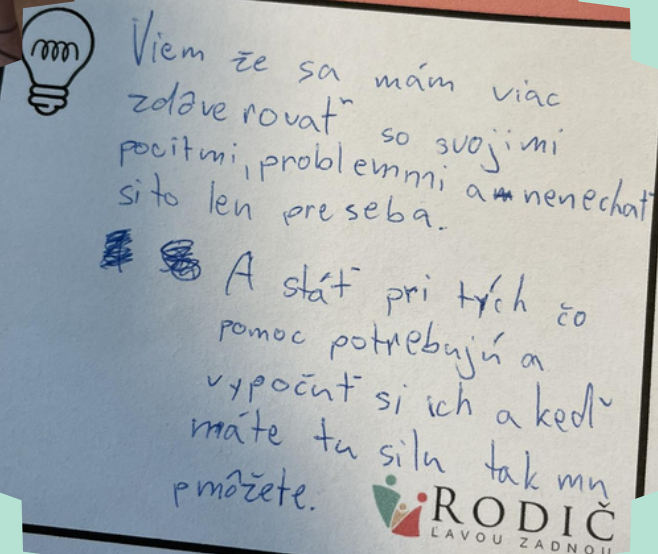 Viem že sa mám viac
zdôverovať so svojimi
pocitmi, problemmi a nenechať
si to len pre seba.
A stáť pri tých čo
pomoc potrebujú a
vypočuť si ich a keď
máte tu silu tak mu
pmôžete.
RODIČ
ĽAVOU ZADNOU